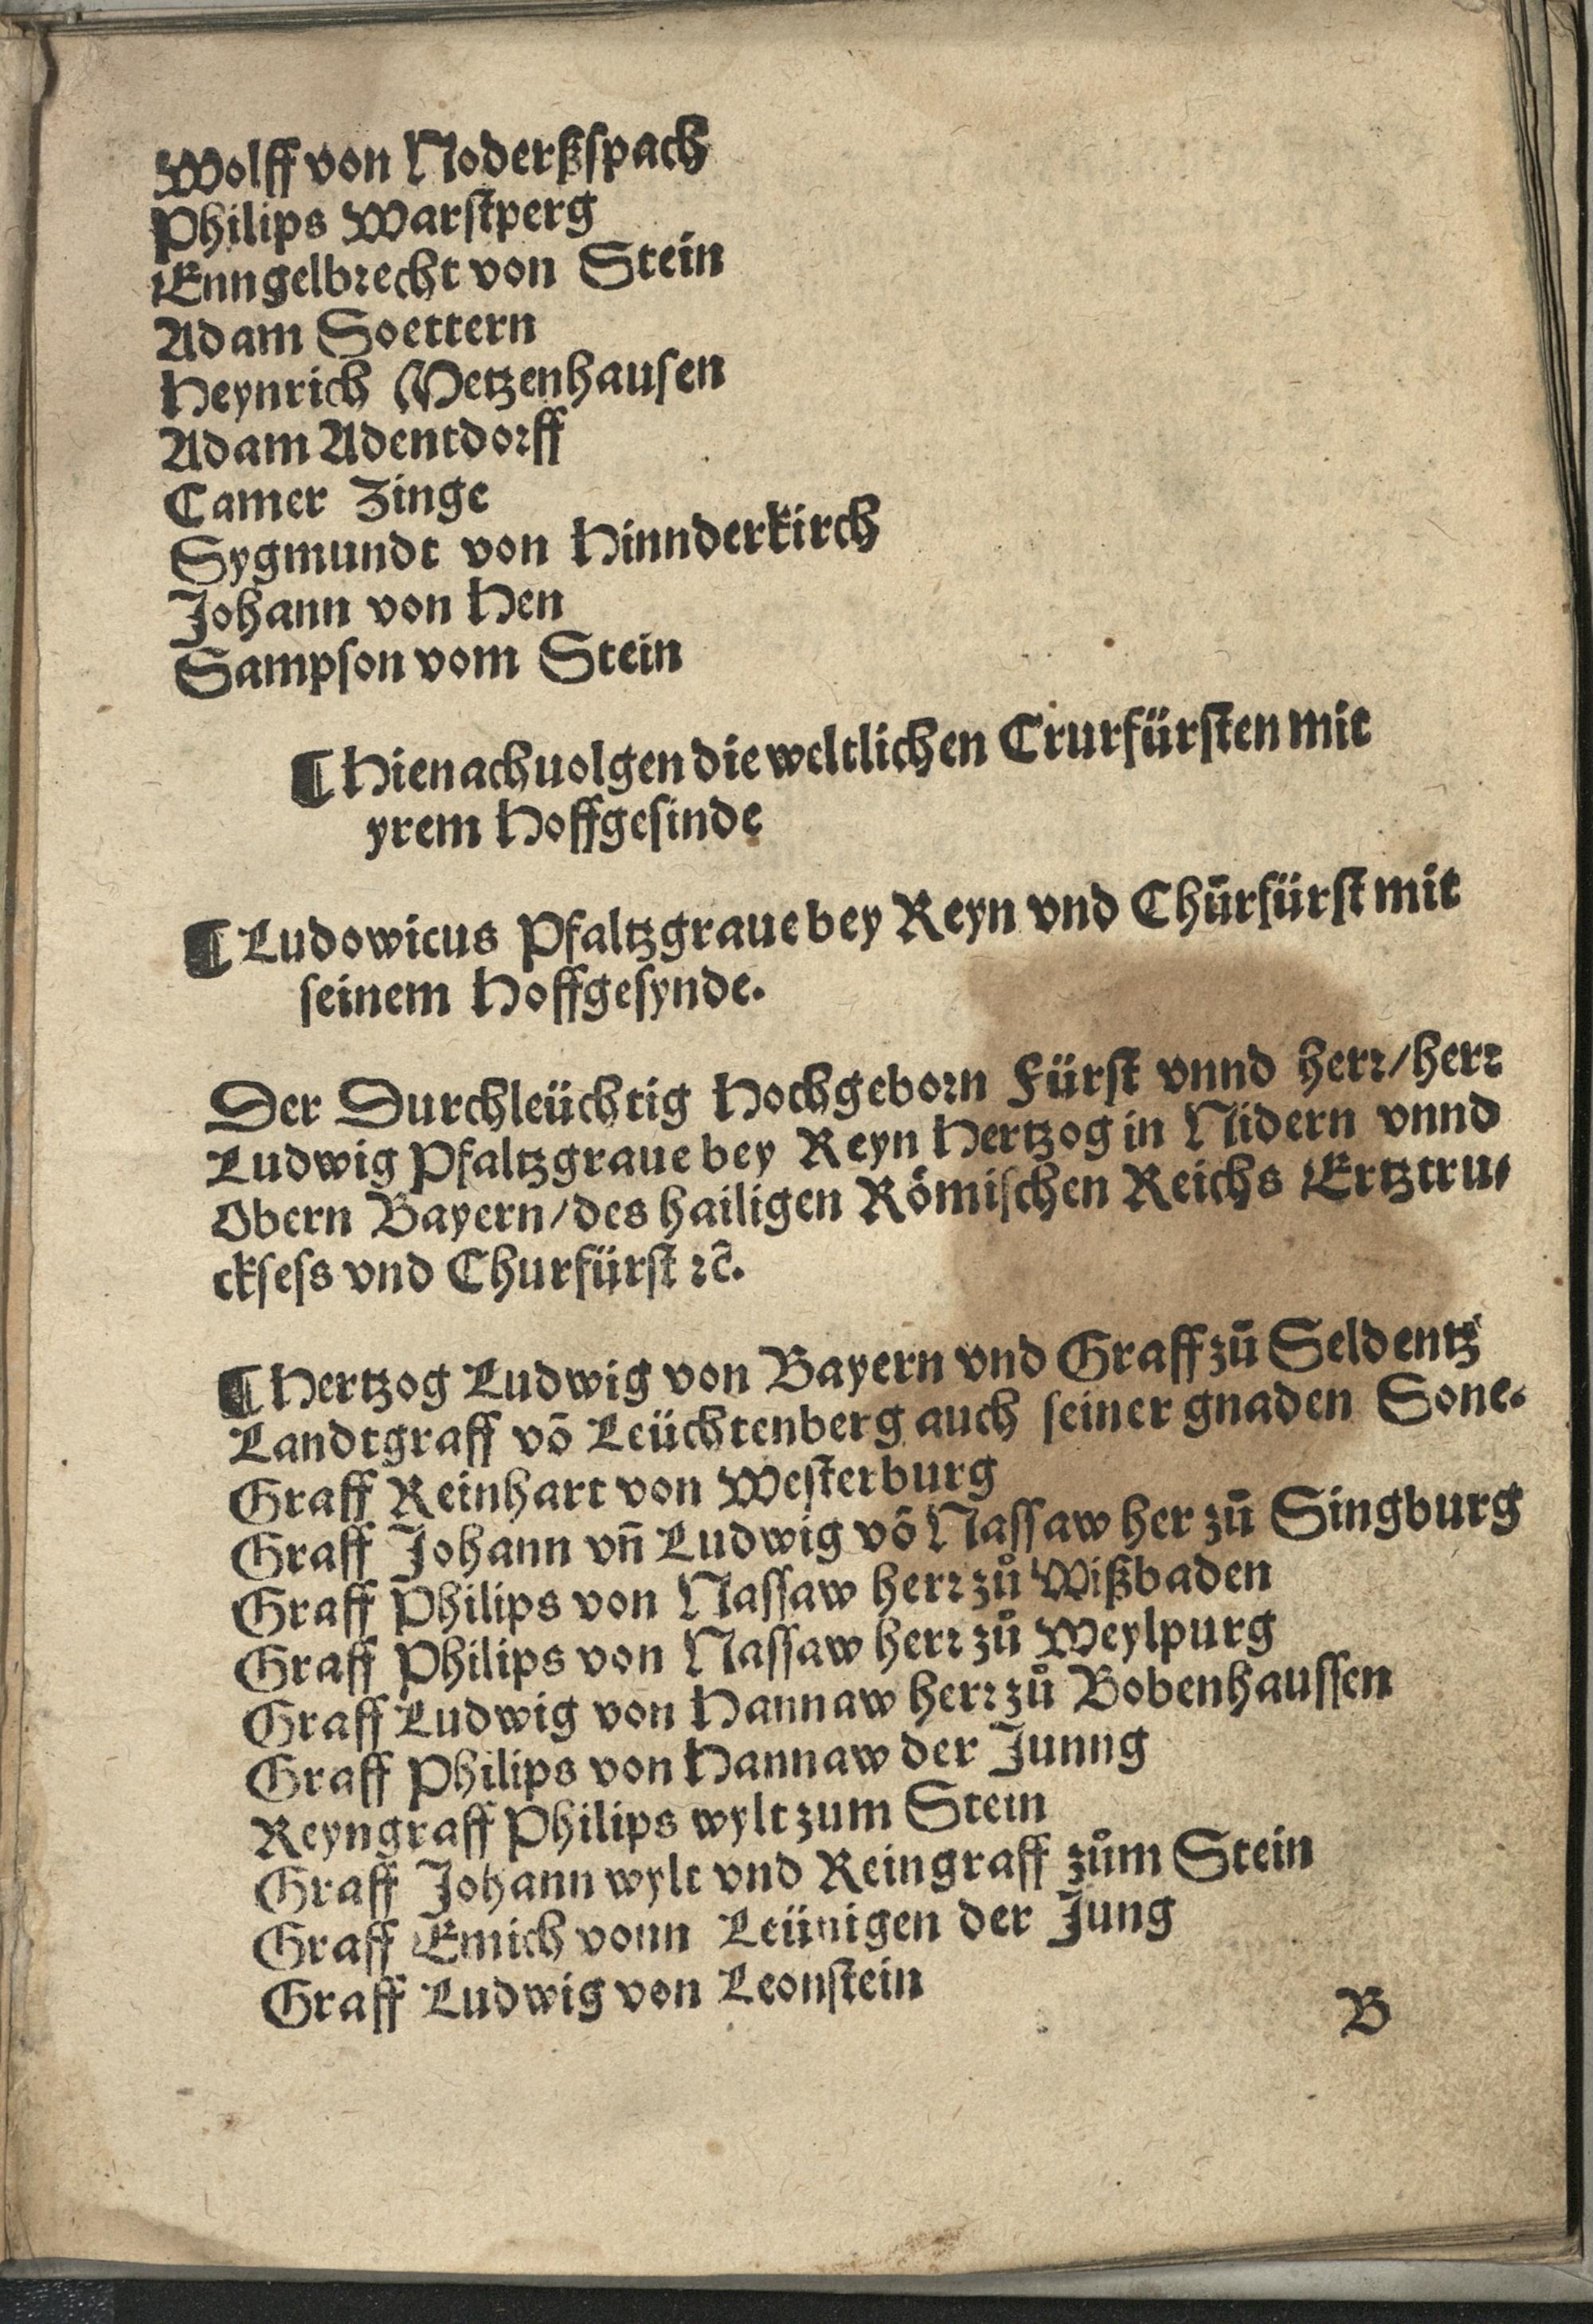 Wolff von Noderßspach
Philips Warstperg
Enngelbrecht von Stein
Adam Soettern
Heynrich Metzenhausen
Adam Adentdorff
Camer Zinge
Sygmundt von Hinnderkirch
Johann von Hen
Sampson vom Stein
¶ Hienachuolgen die weltlichen Crurfürsten mit
yrem Hoffgesinde
¶ Ludowicus Pfaltzgraue bey Reyn vnd Chūrfürst mit
seinem Hoffgesynde.
Der Durchleüchtig Hochgeborn Fürst vnnd Herr/herr
Ludwig Pfaltzgraue bey Reyn Hertzog in Nidern vnnd
Obern Bayern/des hailigen Römischen Reichs Ertztru⸗
cksess vnd Churfürst ꝛc̄.
¶ Hertzog Ludwig von Bayern vnd Graff zū Seldentz
Landtgraff vō Leüchtenberg auch seiner gnaden Sone.
Graff Reinhart von Westerburg
Graff Johann vñ Ludwig vō Nassaw her zū Singburg
Graff Philips von Nassaw herr zů Wißbaden
Graff Philips von Nassaw herr zů Weylpurg
Graff Ludwig von Hannaw herr zů Bobenhaussen
Graff Philips von Hannaw der Junng
Reyngraff Philips wylt zum Stein
Graff Johann wylt vnd Reingraff zům Stein
Graff Emich vonn Leünigen der Jung
Graff Ludwig von Leonstein
B